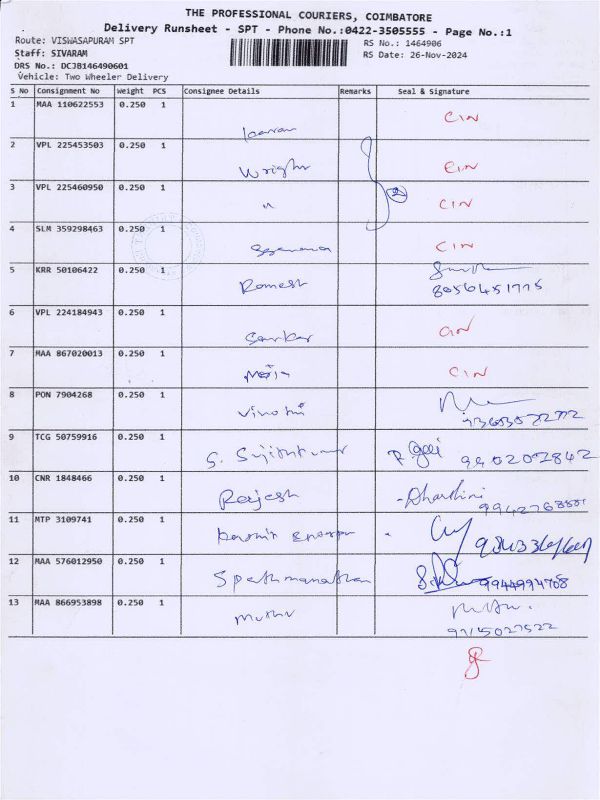 THE PROFESSIONAL COURIERS, COIMBATORE
Delivery Runsheet - SPT - Phone No.:0422-3505555 - Page No.:1
Route: VISWASAPURAM SPT
Staff: SIVARAM
DRS No.: DCJB146490601
Vehicle: Two Wheeler Delivery
RS No.: 1464906
RS Date: 26-Nov-2024
S No Consignment No Weight PCS Consignee Details Remarks Seal & Signature
1 MAA 110622553 0.250 1 CIN
2 VPL 225453503 0.250 1 Wright CIN
3 VPL 225460950 0.250 1 " 2 CIN
4 SLM 359298463 0.250 1 CIN
5 KRR 50106422 0.250 1 Ramesh
6 VPL 224184943 0.250 1 Sankar CIN
7 MAA 867020013 0.250 1 CIN
8 PON 7904268 0.250 1 Vinoth
9 TCG 50759916 0.250 1 S. Sujithkumar
10 CNR 1848466 0.250 1 Rajesh Dharshini
11 MTP 3109741 0.250 1
12 MAA 576012950 0.250 1 Spathmanathan 9944994708
13 MAA 866953898 0.250 1 Muthu